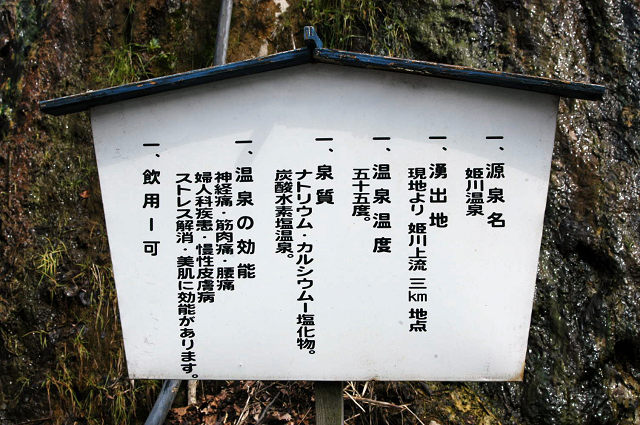 一、源泉名
姫川温泉
一、湧出地
現地より 姫川上流 三km 地点
一、温泉温度
五十五度。
一、泉質
ナトリウム・カルシウムー塩化物。
炭酸水素塩温泉。
一、温泉の効能
神経痛・筋肉痛・腰痛
婦人科疾患・慢性皮膚病
ストレス解消・美肌に効能があります。
一、飲用ー可